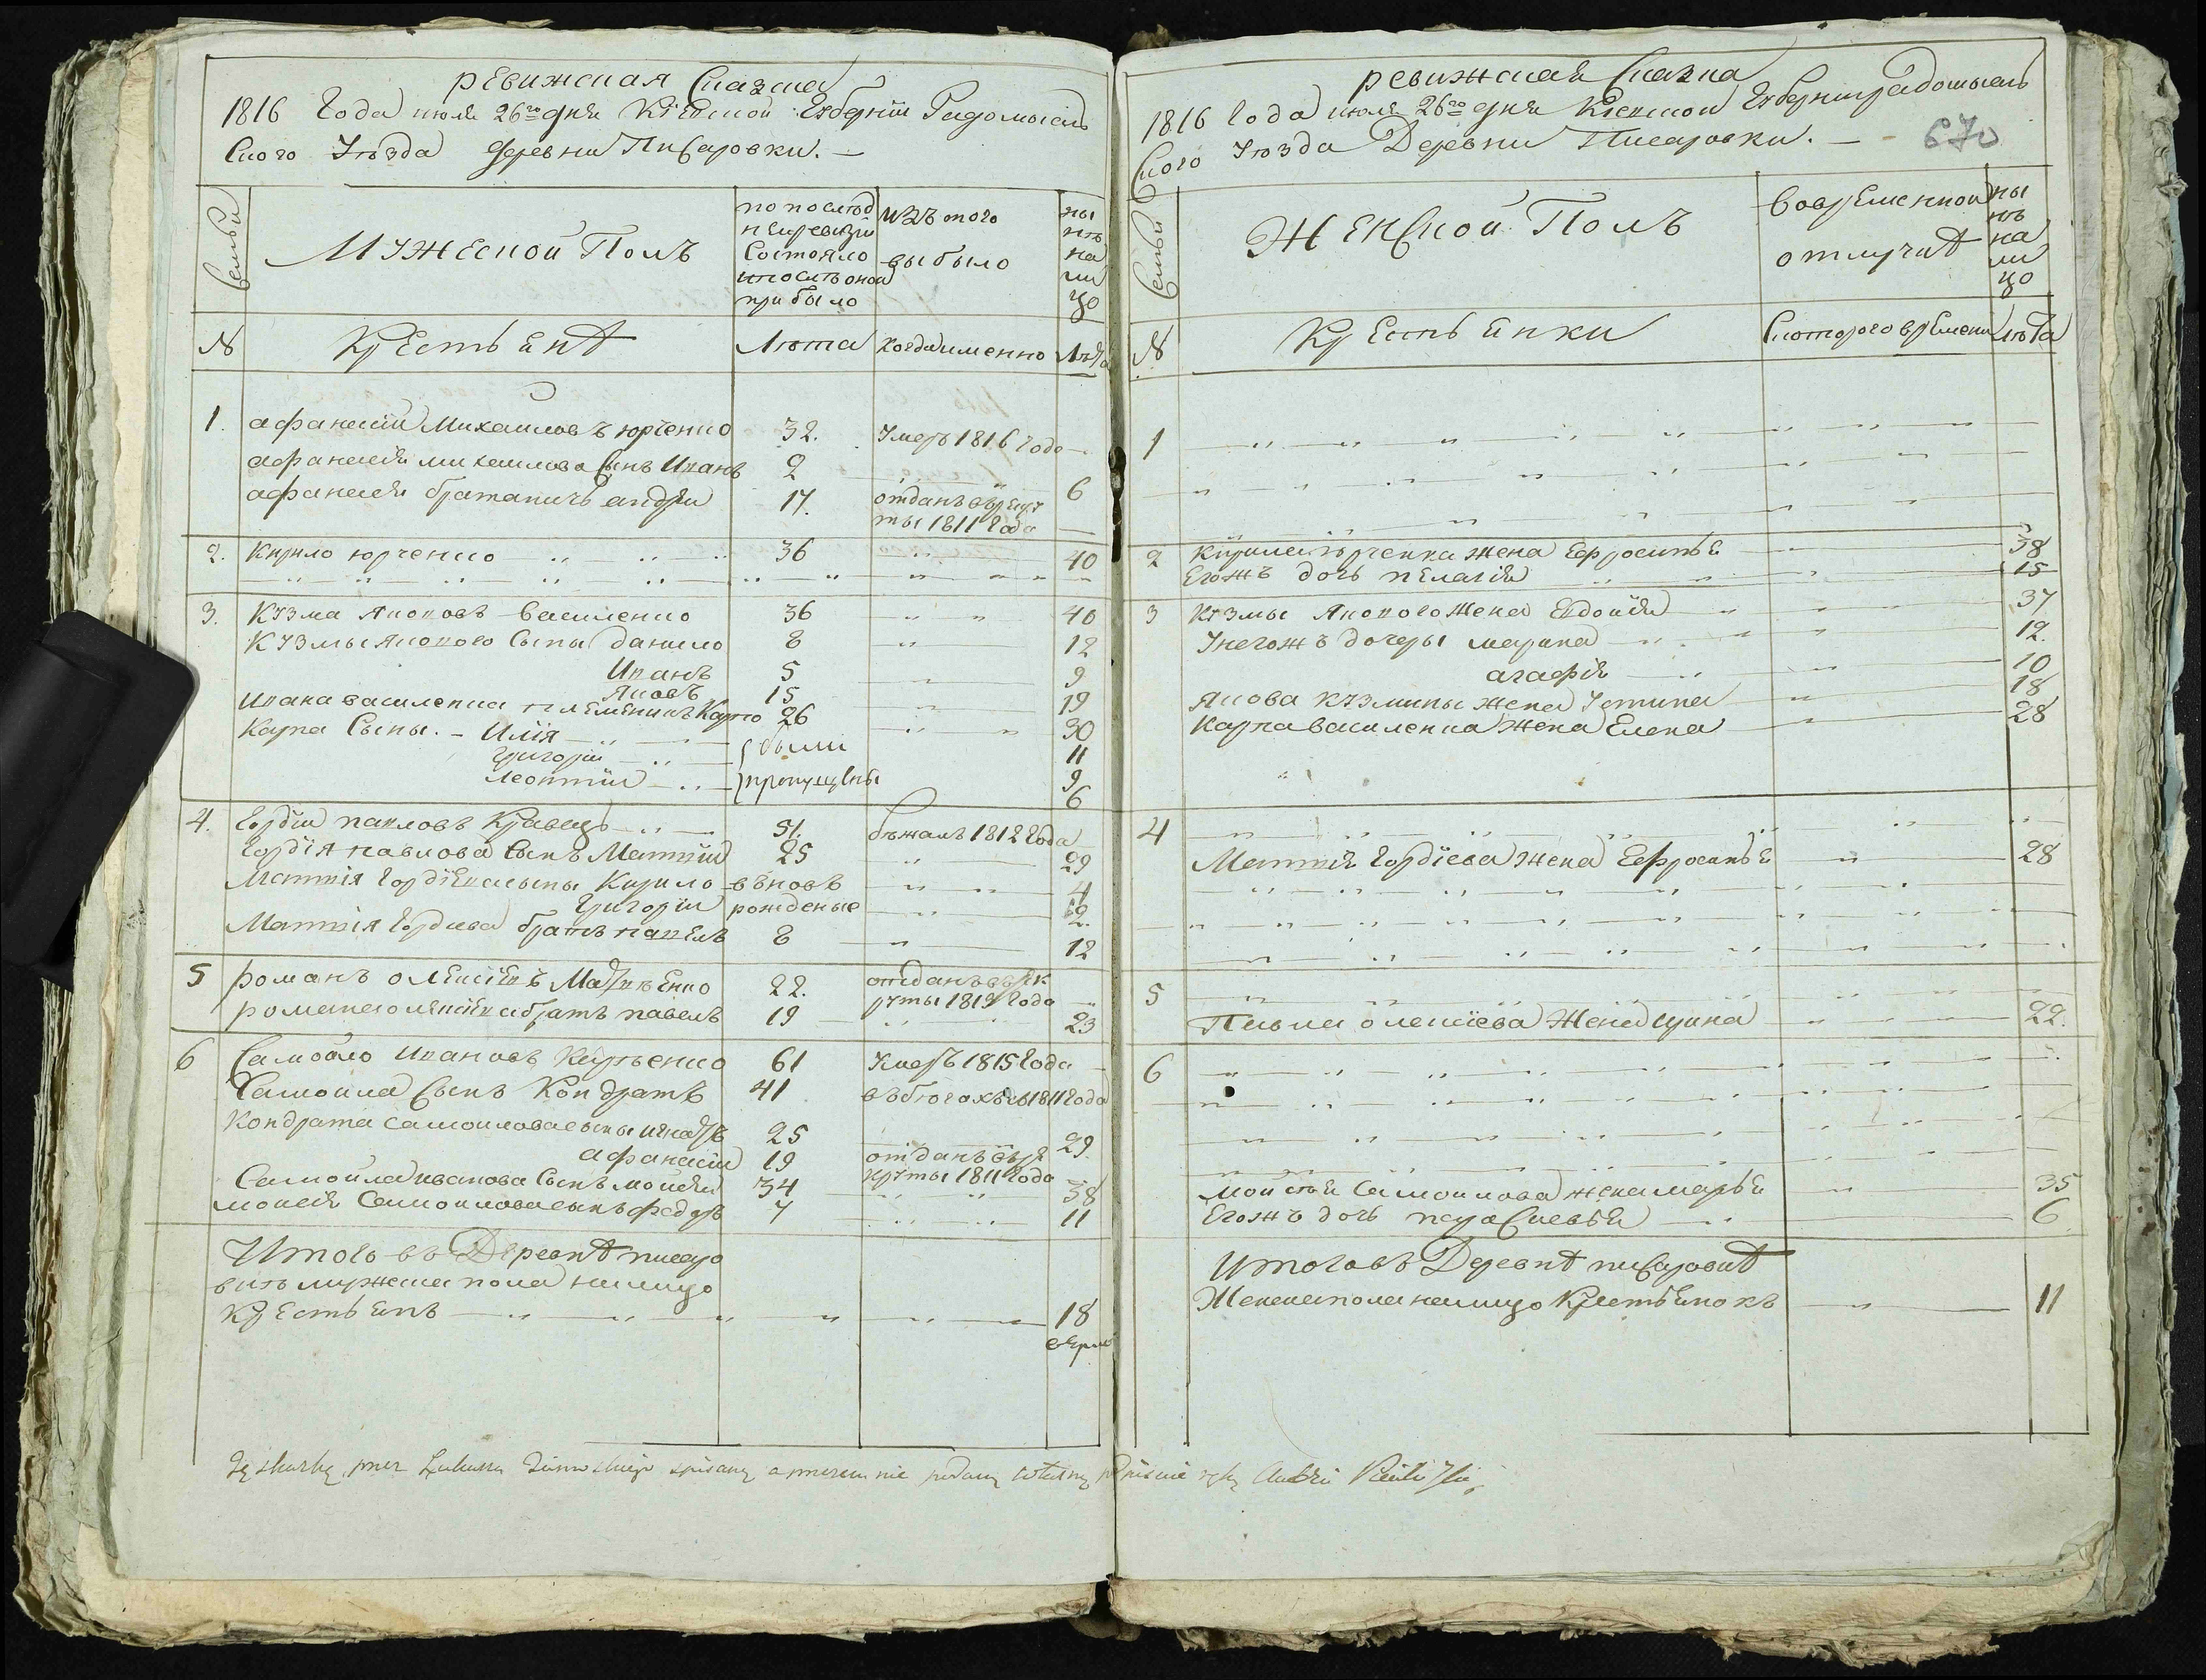 ревижская Сказка
1816 Года июля 26го дня Кіевской Губерніи Радомысль
Скаго Уезда деревни Писаровки. —
Семьи
Мужеской Полъ
по послед
ней ревизіи
Состояло
и после оной
прибыло
изъ того
выбыло
ны
не
на
ли
цо
№
Крестьяне
Лета
Когда именно
Лета
1. афанасій Михаиловъ юрченко 32. Умеръ 1816 года —
афанасія михаилова Сынъ Иванъ 2 6
афанасія братаничъ андрей 17. отданъ въ рекру
ты 1811 Года —
2. Кирило юрченко 36 40
3. Кузма Якововъ василенко 36 40
Кузмы Яковово Сыны данило 8 12
Иванъ 5 9
Яковъ 15 19
Ивана василенка племеникъ Карпо 26 30
Карпа Сыны. — Илія были 11
Григорій 9
леонтій пропущены 6
4. Гордій павловъ Кравецъ 51. бежалъ 1812 Года
Гордія павлова Сынъ Матвій 25 29
Матвія Гордіева сыны Кирило вновъ 4
Григорій рожденые 2.
Матвія Гордіева братъ павелъ 8 12
5 романъ олексіевъ Мадвіенко 22. отданъ въ рек
руты 1813 Года —
романа олексіева братъ павелъ 19 23
6 Самойло Ивановъ 61 Умеръ 1815 Года —
Самоила Сынъ Кондратъ 41 въ бегахъ съ 1811 Года
Кондрата самоилова сыны игнатъ 25 29.
афанасій 19 отданъ въ ре
круты 1811 Года
Самоила иванова Сынъ мойсей 34 38
мойсея Самоилова сынъ федоръ 7 11
Итого въ Деревне писаро
вке мужеска пола налицо
Крестьянъ 18
ревижская Сказка
1816 года июля 26го дня Кіевской Губерніи радомысль
Скаго Уезда Деревни Писаровки. —
670
Семьи
Женской Полъ
во временной
отлучке
ны
не
на
ли
цо
№
Крестьянки
С котораго времени
Лета
1
2 Кирила юрченка жена Ефросинья 38
Его жъ дочь пелагія 15
3 Кузмы Яковово Жена Евдокія 37
У него жъ дочеры марина 12.
агафія 10
Якова Кузмины жена Устина 18
Карпа василенка жена Елена 28
4
Матвія Гордіева жена Ефросинья 28
5
Павла олексіева Жена 22.
6
мойсея Самоилова жена марья 35
Его жъ дочь параскевья 6
Итого въ Деревне писаровке
Женска пола налицо Крестьянокъ 11
Tę skarkę przez Łukasza spisaną a przezemnie podaną własną podpisuie ręką